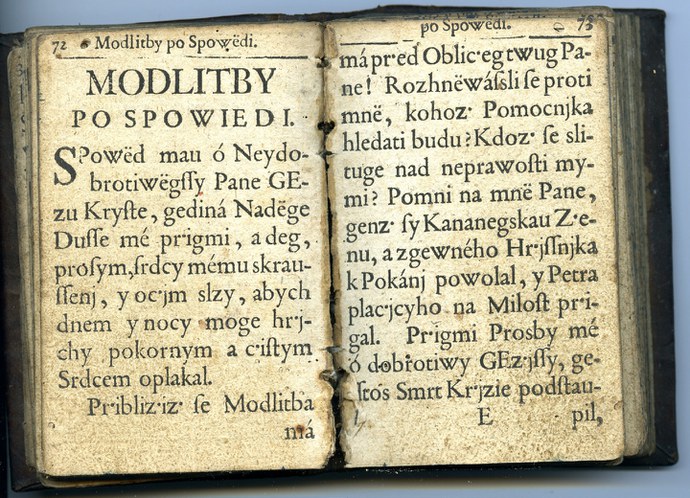 72 Modlitby po Spowědi.
MODLITBY
PO SPOWIEDI.
SPowěd mau ó Neydo-
brotiwěgſſy Pane GE-
zu Kryſte, gediná Naděge
Duſſe mé pr·igmi, a deg,
proſym, ſrdcy mému skrau-
ſſenj, y oc·jm slzy, abych
dnem y nocy moge hr·j-
chy pokornym a c·iſtym
Srdcem oplakal.
Pr·ibliz·iz· ſe Modlitba
má
po Spowědi. 73
má pr·ed Oblic·eg twug Pa-
ne! Rozhněwáſsli ſe proti
mně, kohoz· Pomocnjka
hledati budu? Kdoz· ſe sli-
tuge nad neprawoſti my-
mi? Pomni na mně Pane,
genz· ſy Kananegskau Z·e-
nu, a zgewného Hr·jſſnjka
k Pokánj powolal, y Petra
plac·jcyho na Miloſt pr·i-
gal. Pr·igmi Prosby mé
ó dobrotiwy GEz·jſſy, ge-
ſtos Smrt Kr·jzie podſtau-
E pil,